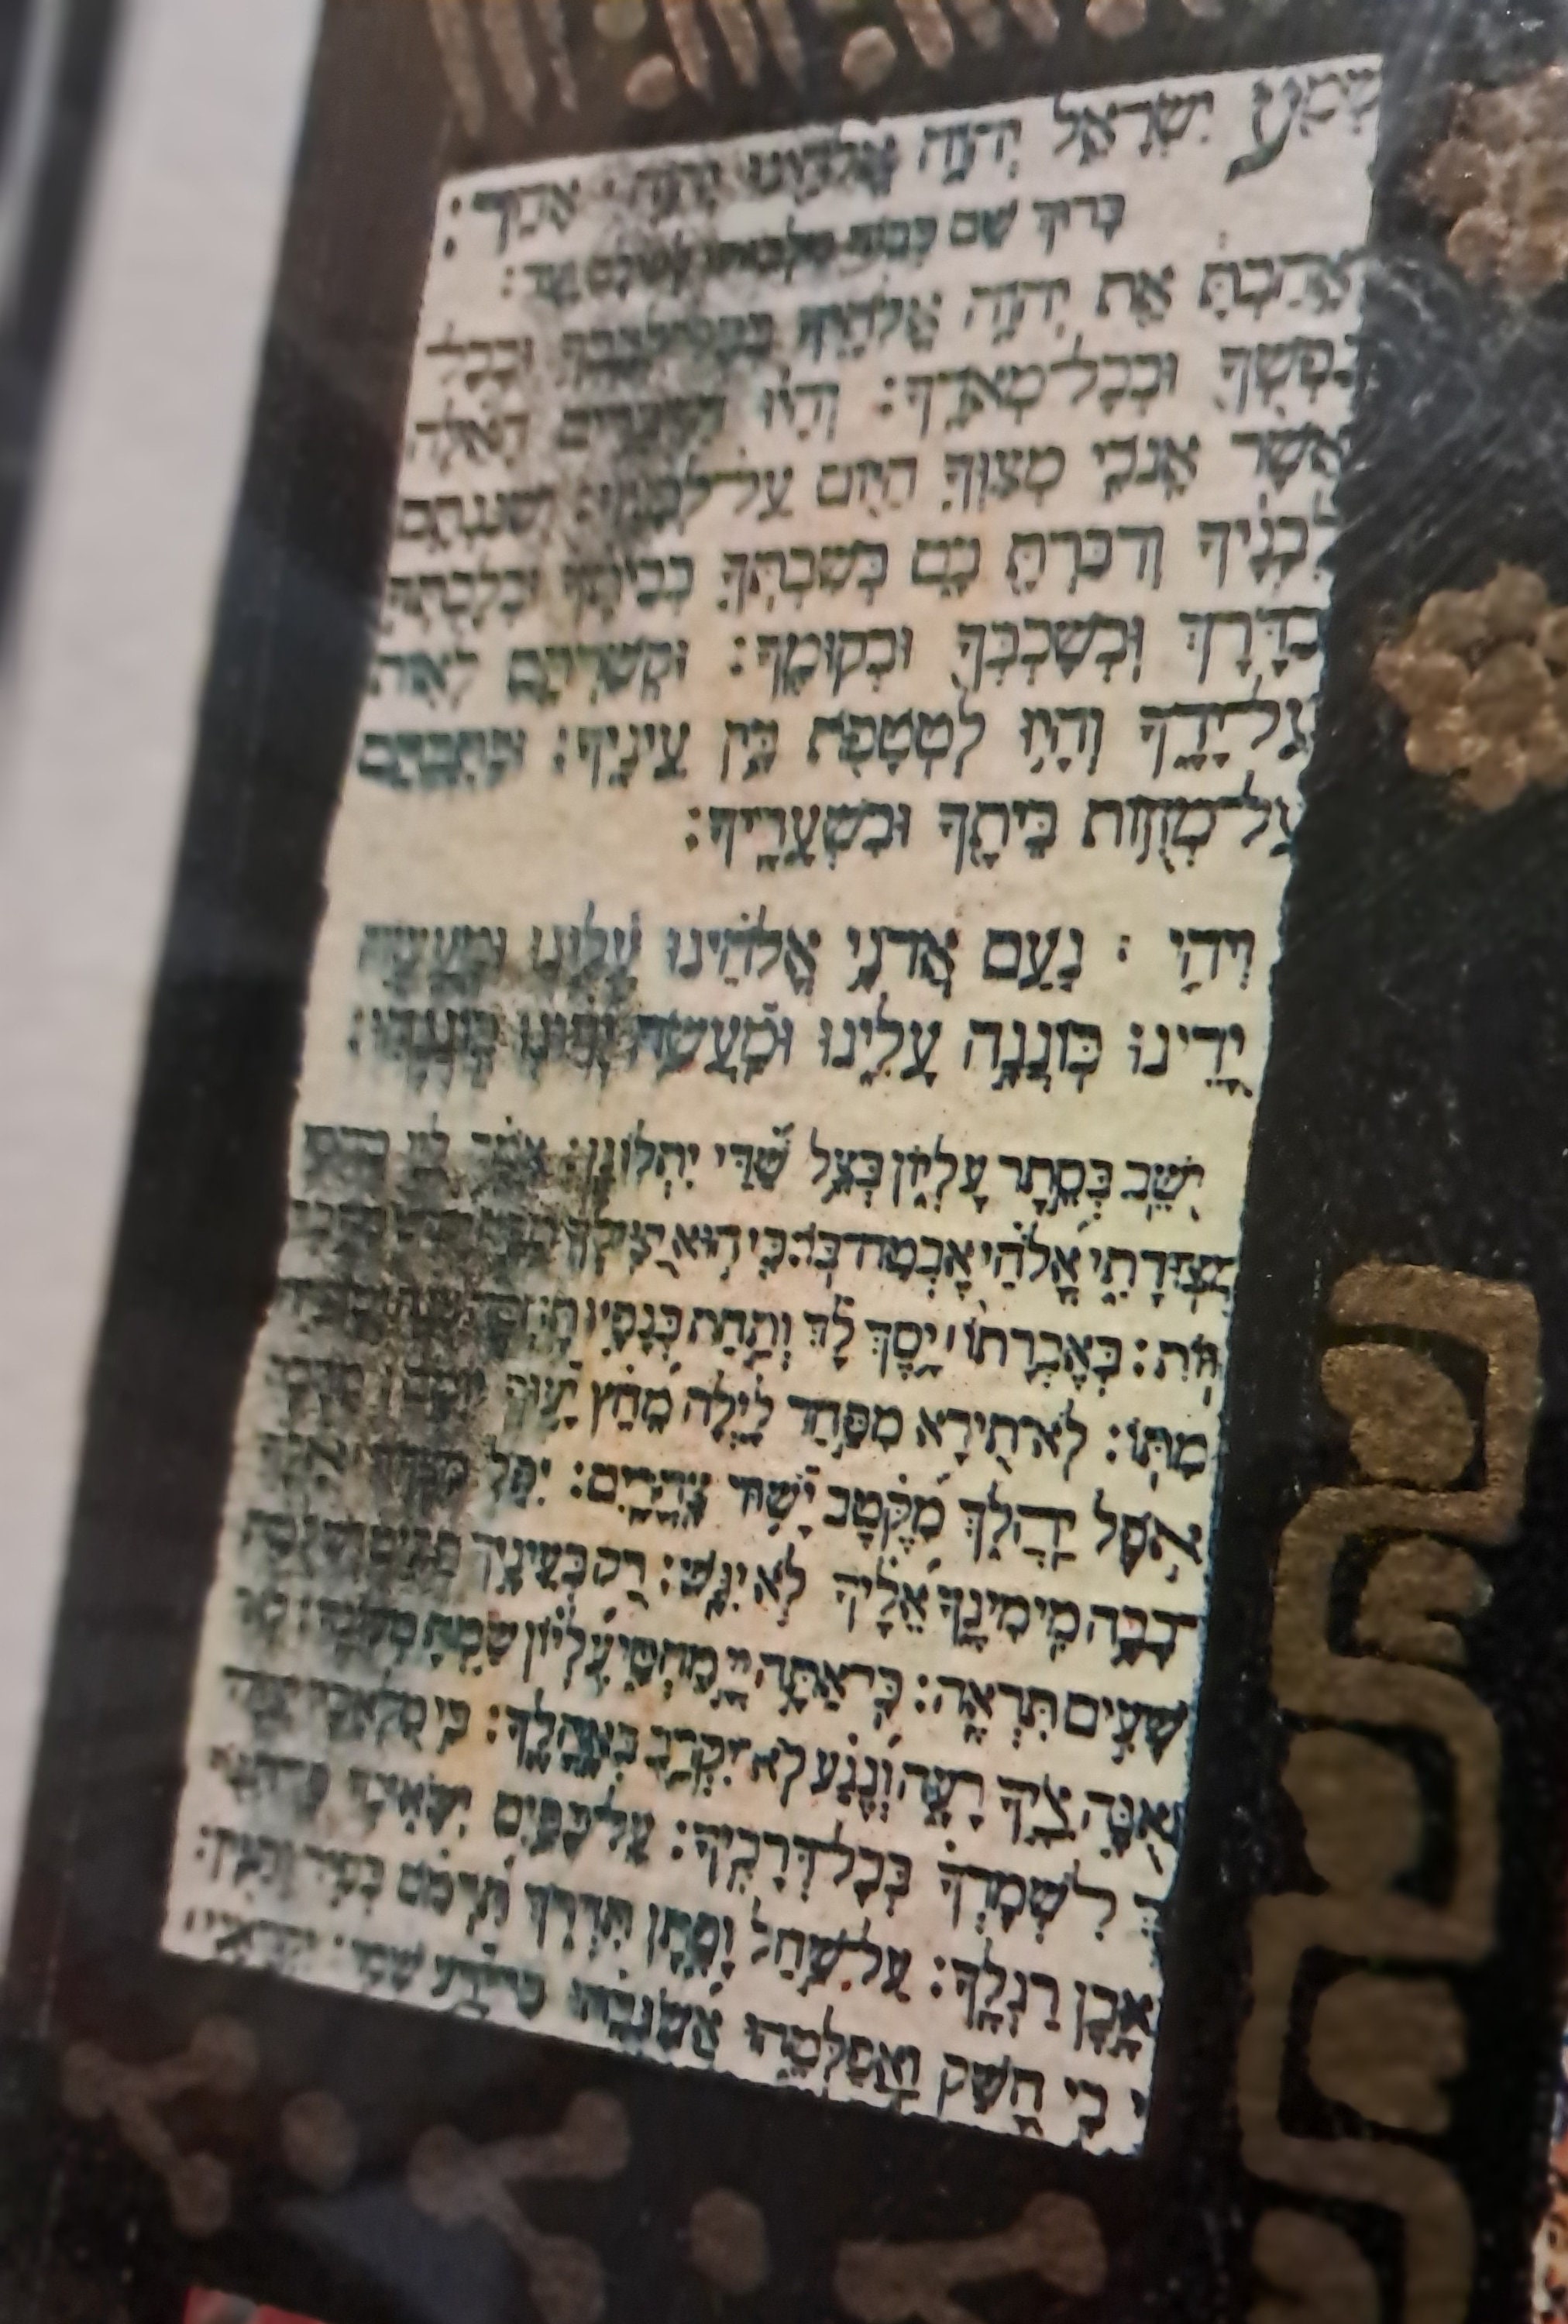 שְׁמַע יִשְׂרָאֵל יְהוָה אֱלֹהֵינוּ יְהוָה אֶחָד:
בָּרוּךְ שֵׁם כְּבוֹד מַלְכוּתוֹ לְעוֹלָם וָעֶד:
אָהַבְתָּ אֵת יְהוָה אֱלֹהֶיךָ בְּכָל־לְבָבְךָ וּבְכָל
נַפְשְׁךָ וּבְכָל־מְאֹדֶךָ: וְהָיוּ הַדְּבָרִים הָאֵלֶּה
אֲשֶׁר אָנֹכִי מְצַוְּךָ הַיּוֹם עַל־לְבָבֶךָ: וְשִׁנַּנְתָּם
לְבָנֶיךָ וְדִבַּרְתָּ בָּם בְּשִׁבְתְּךָ בְּבֵיתֶךָ וּבְלֶכְתְּךָ
בַדֶּרֶךְ וּבְשָׁכְבְּךָ וּבְקוּמֶךָ: וּקְשַׁרְתָּם לְאוֹת
עַל־יָדֶךָ וְהָיוּ לְטֹטָפֹת בֵּין עֵינֶיךָ: וּכְתַבְתָּם
עַל־מְזֻזוֹת בֵּיתֶךָ וּבִשְׁעָרֶיךָ:
וִיהִי : נֹעַם אֲדֹנָי אֱלֹהֵינוּ עָלֵינוּ וּמַעֲשֵׂה
יָדֵינוּ כּוֹנְנָה עָלֵינוּ וּמַעֲשֵׂה יָדֵינוּ כּוֹנְנֵהוּ:
יֹשֵׁב בְּסֵתֶר עֶלְיוֹן בְּצֵל שַׁדַּי יִתְלוֹנָן: אֹמַר לַיי מַחְסִי
מְצוּדָתִי אֱלֹהַי אֶבְטַח־בּוֹ: כִּי הוּא יַצִּילְךָ
הַוּוֹת: בְּאֶבְרָתוֹ יָסֶךְ לָךְ וְתַחַת כְּנָפָיו תֶּחְסֶה
מִתּוֹ: לֹא־תִירָא מִפַּחַד לָיְלָה מֵחֵץ יָעוּף יוֹמָם:
אֹפֶל יַהֲלֹךְ מִקֶּטֶב יָשׁוּד צָהֳרָיִם: יִפֹּל מִצִּדְּךָ אֶלֶף
רְבָבָה מִימִינֶךָ אֵלֶיךָ לֹא יִגָּשׁ: רַק בְּעֵינֶיךָ תַבִּיט
שָׁעִים תִּרְאֶה: כִּי־אַתָּה יְיָ מַחְסִי עֶלְיוֹן שַׂמְתָּ מְעוֹנֶךָ: לֹא
תְאֻנֶּה אֵלֶיךָ רָעָה וְנֶגַע לֹא־יִקְרַב בְּאָהֳלֶךָ: כִּי מַלְאָכָיו יְצַוֶּה
ךְ לִשְׁמָרְךָ בְּכָל־דְּרָכֶיךָ: עַל־כַּפַּיִם יִשָּׂאוּנְךָ פֶּן־תִּגֹּף
אֶבֶן רַגְלֶךָ: עַל־שַׁחַל וָפֶתֶן תִּדְרֹךְ תִּרְמֹס כְּפִיר וְתַנִּין:
י כִי חָשַׁק וַאֲפַלְּטֵהוּ אֲשַׂגְּבֵהוּ כִּי־יָדַע שְׁמִי: יִקְרָאֵנִי